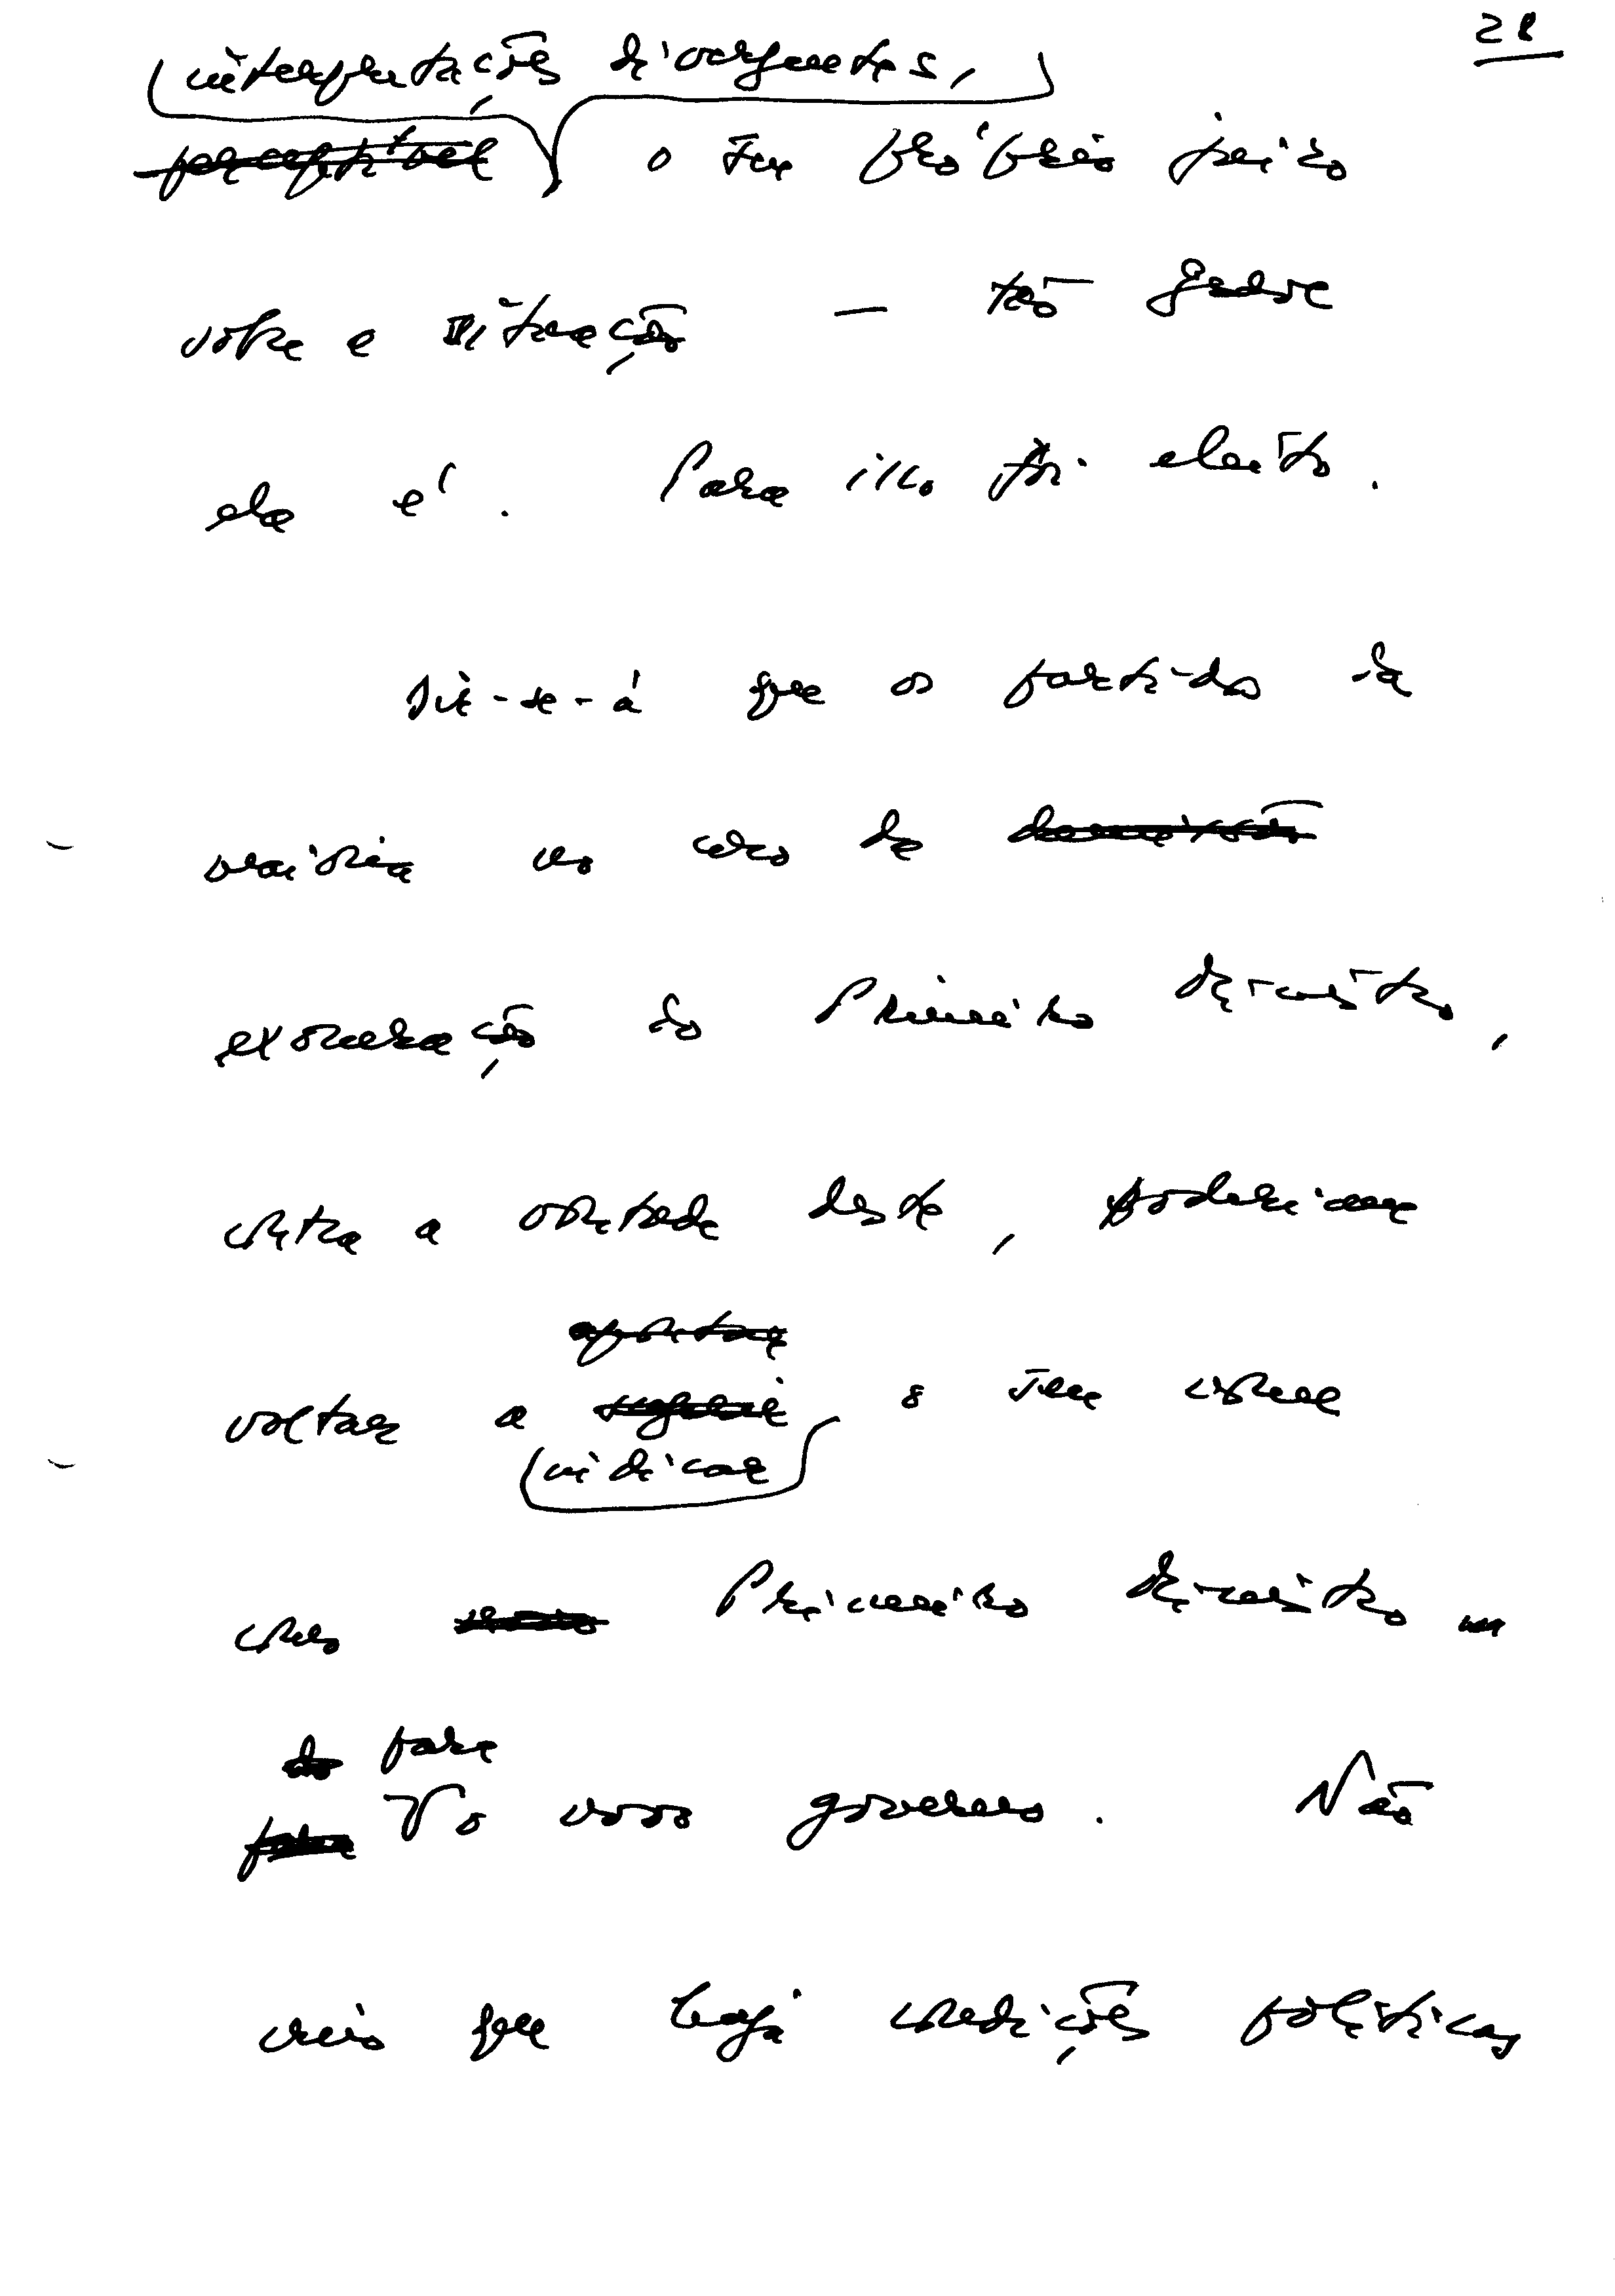 28
interpretações divergentes,
perceptível o seu próprio juízo
sobre a situação — tão grave
ela é. Para isso foi eleito.
Dir-se-á que os partidos da
maioria no caso de demissão
exoneração do Primeiro Ministro,
contra a vontade deste, poderiam
apontar
voltar a sugerir o seu nome
indicar
como novo Primeiro Ministro
do para
para o novo governo. Não
creio que haja condições políticas